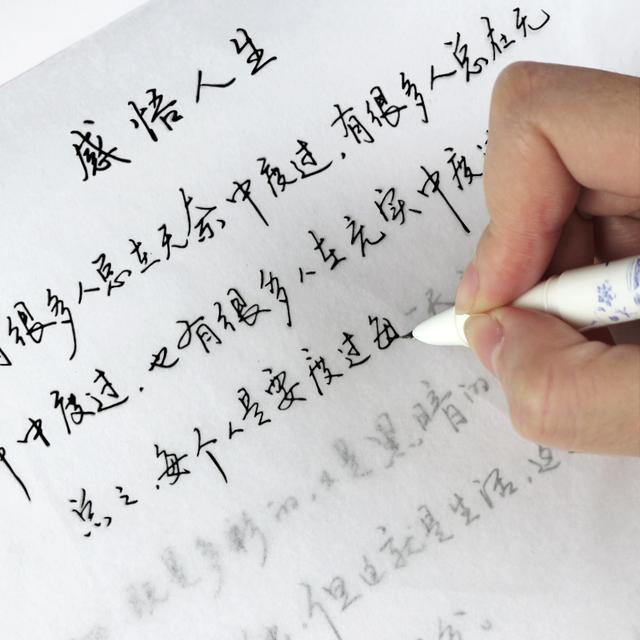 感悟人生
有很多人总在无奈中度过，有很多人总在无
中度过，也有很多人在充实中度
总之，每个人是要度过每一
是多彩的，又是黑暗的
但这就是生活，